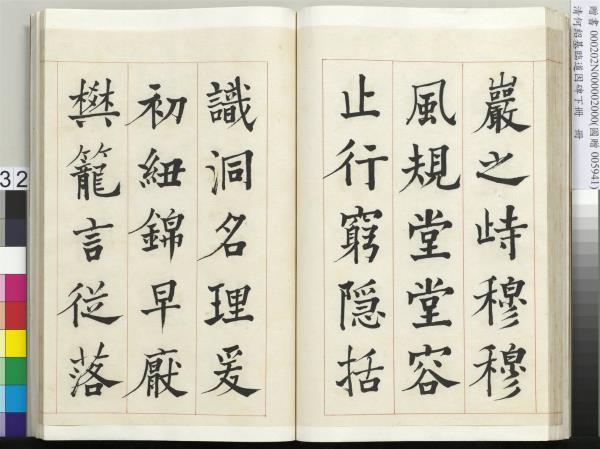 巖之峙穆穆
風規堂堂容
止行窮隱括
識洞名理爰
初紐錦早厭
樊籠言從落
贈書 000202N000002000(國贈 005941)
清何紹基臨道因碑下冊 冊
32